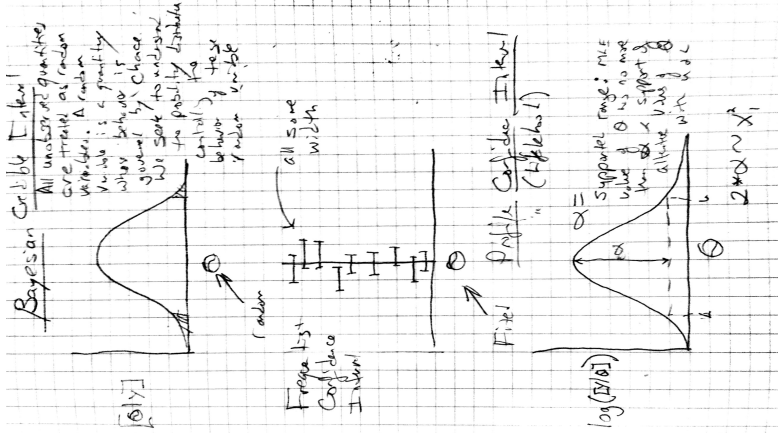 Bayesian Credible Interval
All unobserved quantities
are treated as random
variables. A random
variable is a quantity
whose behavior is
governed by chance.
We seek to understand
the probability distribution
controlling the
behavior of these
random variable
[θ|y]
θ
random
Frequentist
Confidence
Interval
all same
width
θ
Fixed
Profile Confidence Interval
(Likelihood)
log([y|θ])
α
θ
α =
Supported range: MLE
value of θ has no more
than α x support of
alternative values of θ
with data
2*α ~ χ²₁